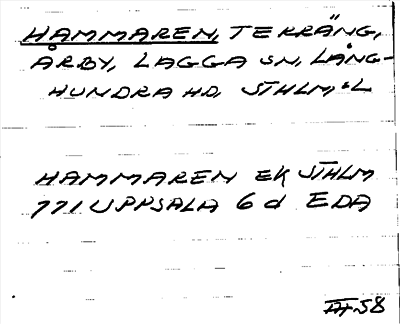 HAMMAREN, TERRÄNG,
ÅRBY, LAGGA SN, LÅNG-
HUNDRA HD, STHLM:L
HAMMAREN EK STHLM
771 UPPSALA 6 d EDA
58